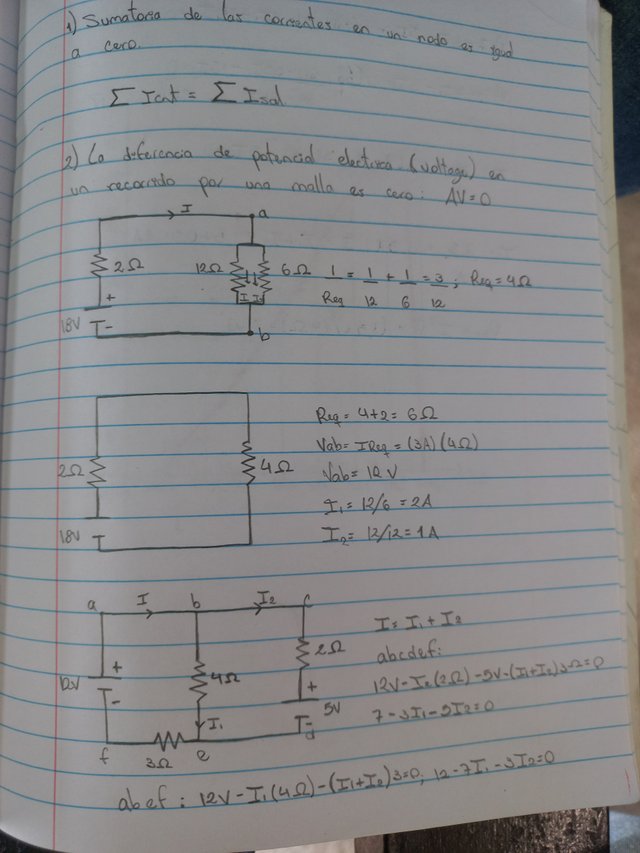 1) Sumatoria de las corrientes en un nodo es igual
a cero.
∑ Ient = ∑ Isal
2) La diferencia de potencial electrica (voltage) en
un recorrido por una malla es cero: ΔV=0
I a
2Ω 12Ω 6Ω 1/Req = 1/12 + 1/6 = 3/12 ; Req = 4Ω
+
18V - b
Req = 4+2 = 6Ω
Vab = IReq = (3A)(4Ω)
2Ω 4Ω Vab = 12V
I₁ = 12/6 = 2A
18V I₂ = 12/12 = 1A
a I b I₂ c
I = I₁ + I₂
2Ω abcdef:
12V + 4Ω + 12V - I₂(2Ω) - 5V - (I₁+I₂)3Ω = 0
- I₁ 5V - d 7 - 3I₁ - 5I₂ = 0
f 3Ω e
abef : 12V - I₁(4Ω) - (I₁+I₂)3=0; 12-7I₁-3I₂=0